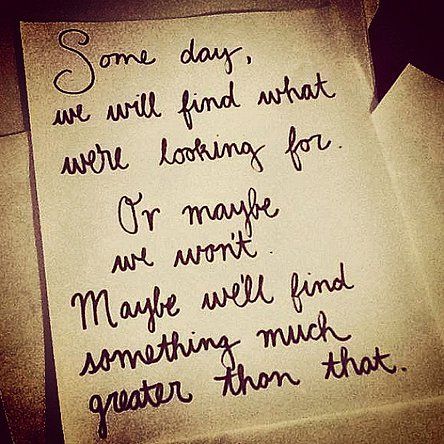 Some day,
we will find what
we're looking for.
Or maybe
we won't.
Maybe we'll find
something much
greater than that.